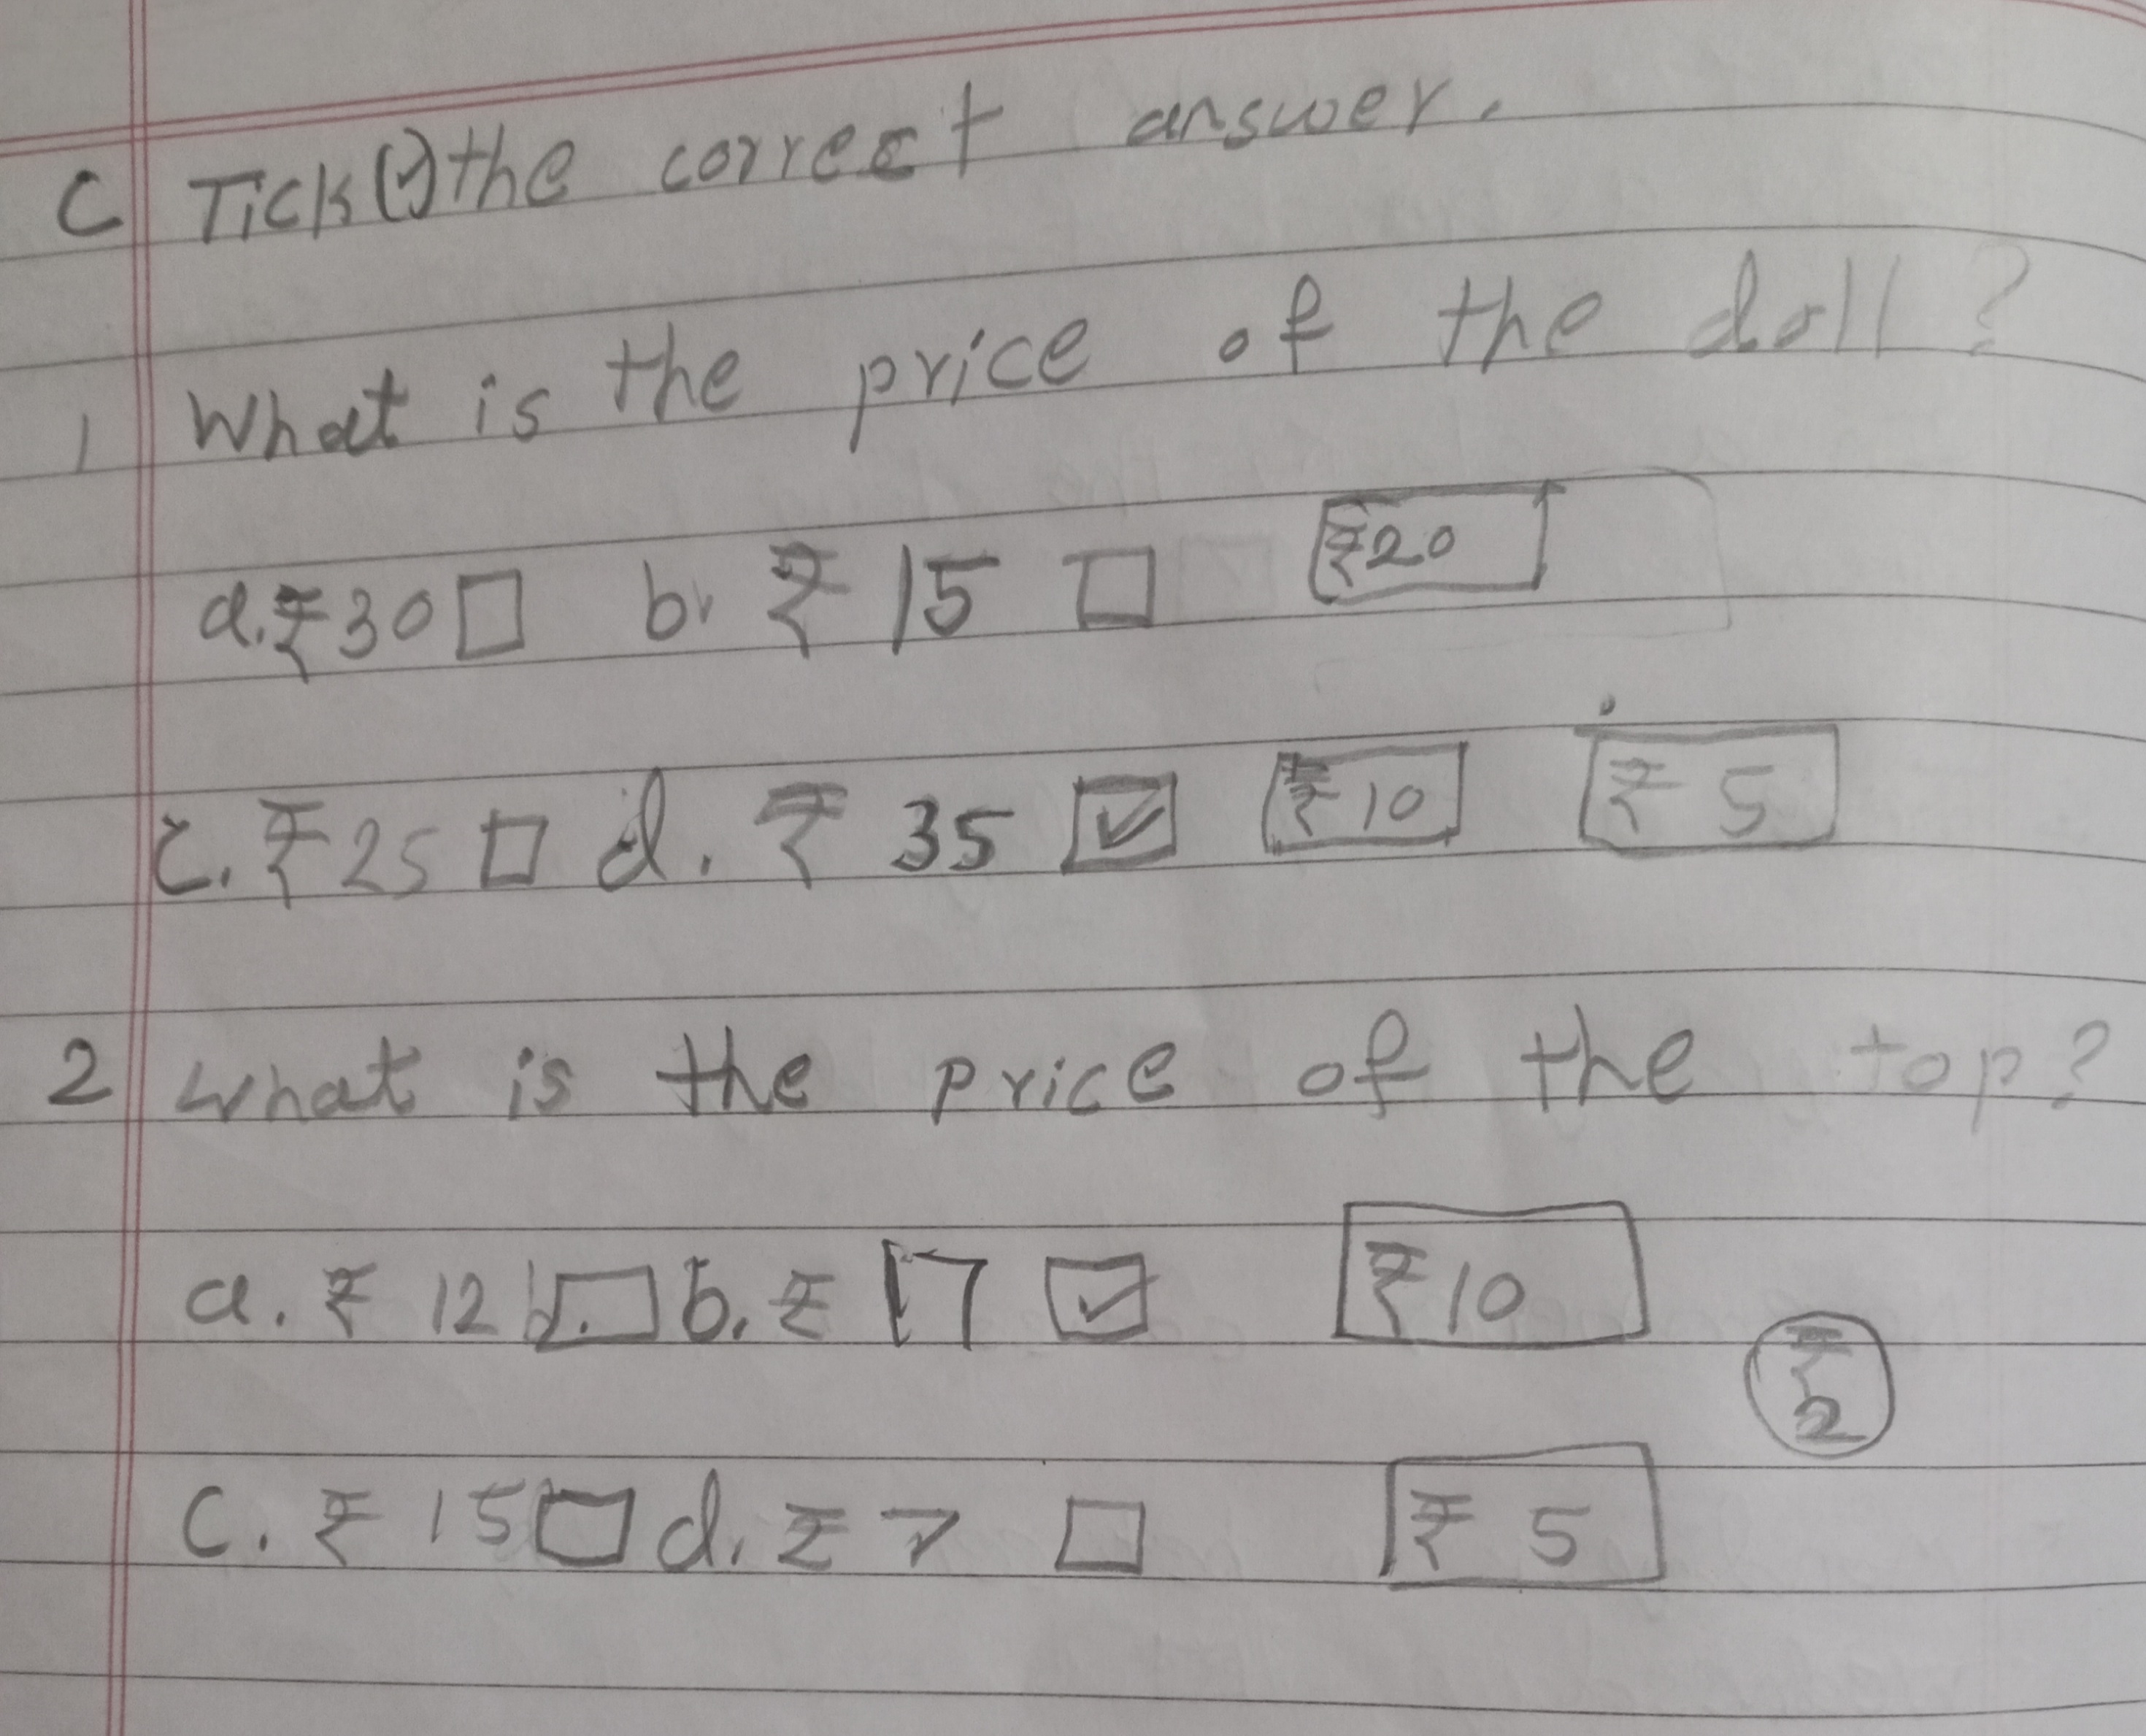 C Tick(✓)the correct answer.
1 What is the price of the doll?
a.₹30☐ b. ₹ 15 ☐ ₹20
c. ₹25 ☐ d. ₹ 35 ☑ ₹10 ₹ 5
2 What is the price of the top?
a. ₹ 12 ☐ b. ₹ 17 ☑ ₹10
₹
2
C. ₹ 15☐ d. ₹ 7 ☐ ₹ 5